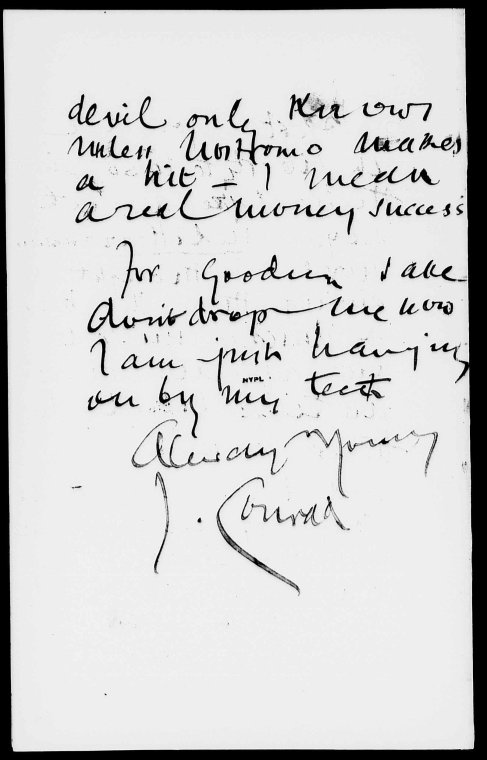 devil only knows
unless Nostromo makes
a hit – I mean
a real money success
For goodness sake
don't drop me now
I am just hanging
on by my teeth
NYPL
Always Yours
J. Conrad